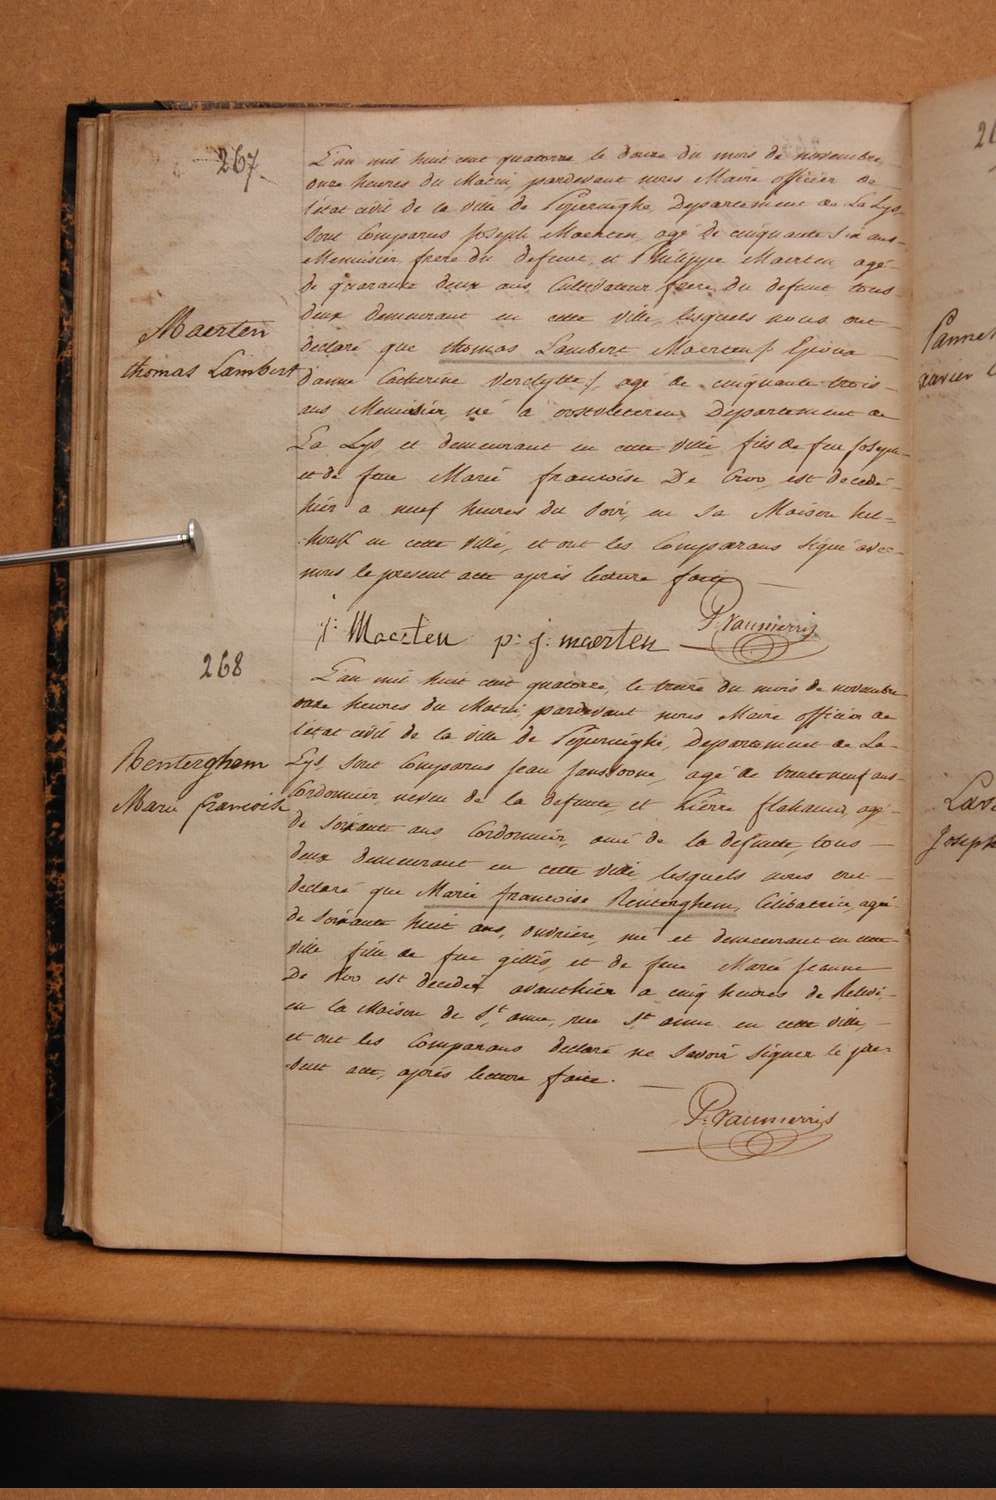 267
L'an mil huit cent quatorze, le douze du mois de novembre
onze heures du Matin, pardevant nous Maire officier de
l'état civil de la ville de Poperinghe, Departement de La Lys,
sont Comparus Joseph Maerten, agé de cinquante six ans
Menuisier, frere du defunt, et Philippe Maerten, agé
de quarante deux ans Cultivateur, frere du defunt tous
deux demeurant en cette ville, lesquels nous ont
declaré que thomas Lambert Maerten, Epoux
d'anne Catherine Verclytte, agé de cinquante trois
ans Menuisier, né a oostvleteren Departement de
La Lys, et demeurant en cette ville fils de feu Joseph
et de feue Marie francoise De Croo, est decedé
hier a neuf heures du soir, en sa Maison
en cette ville, et ont les Comparans signé avec
nous le present acte après lecture faite
Maerten
thomas Lambert
j: Maerten p: j: maerten P. Vanmerris
268
L'an mil huit cent quatorze, le treize du mois de novembre
onze heures du Matin, pardevant nous Maire officier de
l'etat civil de la ville de Poperinghe, Departement de La
Lys, sont Comparus Jean Janssoone, agé de trenteneuf ans
Cordonnier, neveu de la defunte, et Pierre flahaud, agé
de soixante ans Cordonnier, ami de la defunte, tous
deux demeurant en cette ville lesquels nous ont
declaré que Marie francoise Renterghem, Celibatrice, agée
de soixante huit ans, ouvrière, née et demeurant en cette
ville fille de feu gillis, et de feue Marie Jeanne
De Roo est decedée avanthier a cinq heures de Relevé,
en la Maison de St anne, rue St anne en cette ville,
et ont les Comparans declaré ne savoir signer le pre-
sent acte, après lecture faite.
Renterghem
Marie francoise
P. Vanmerris